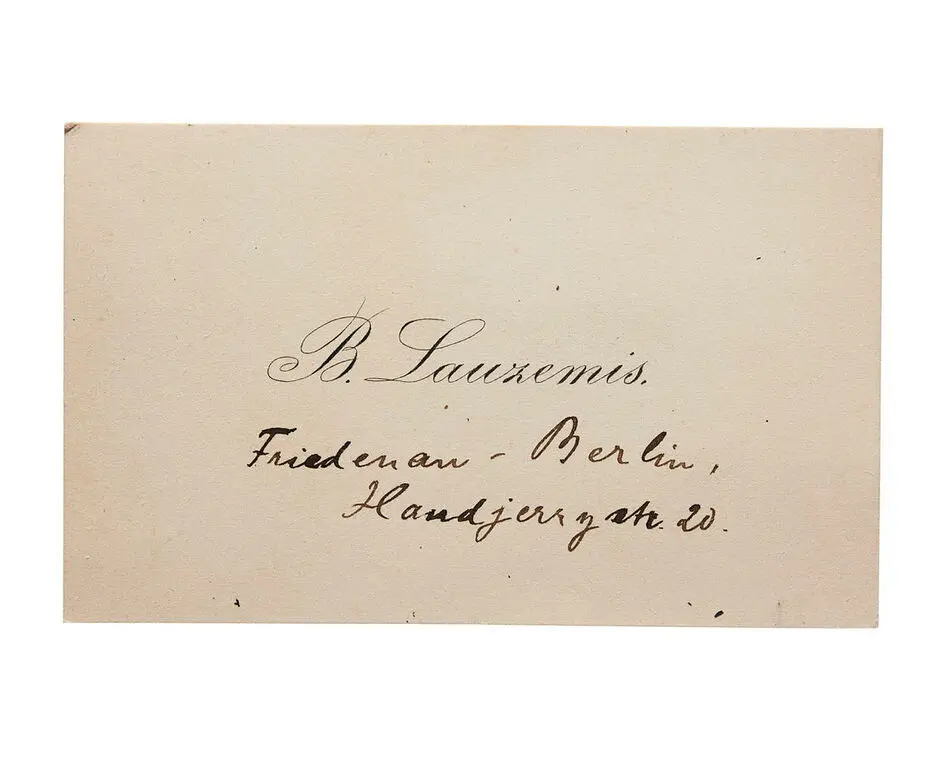 B. Lauzemis.
Friedenau - Berlin,
Handjerrystr. 20.